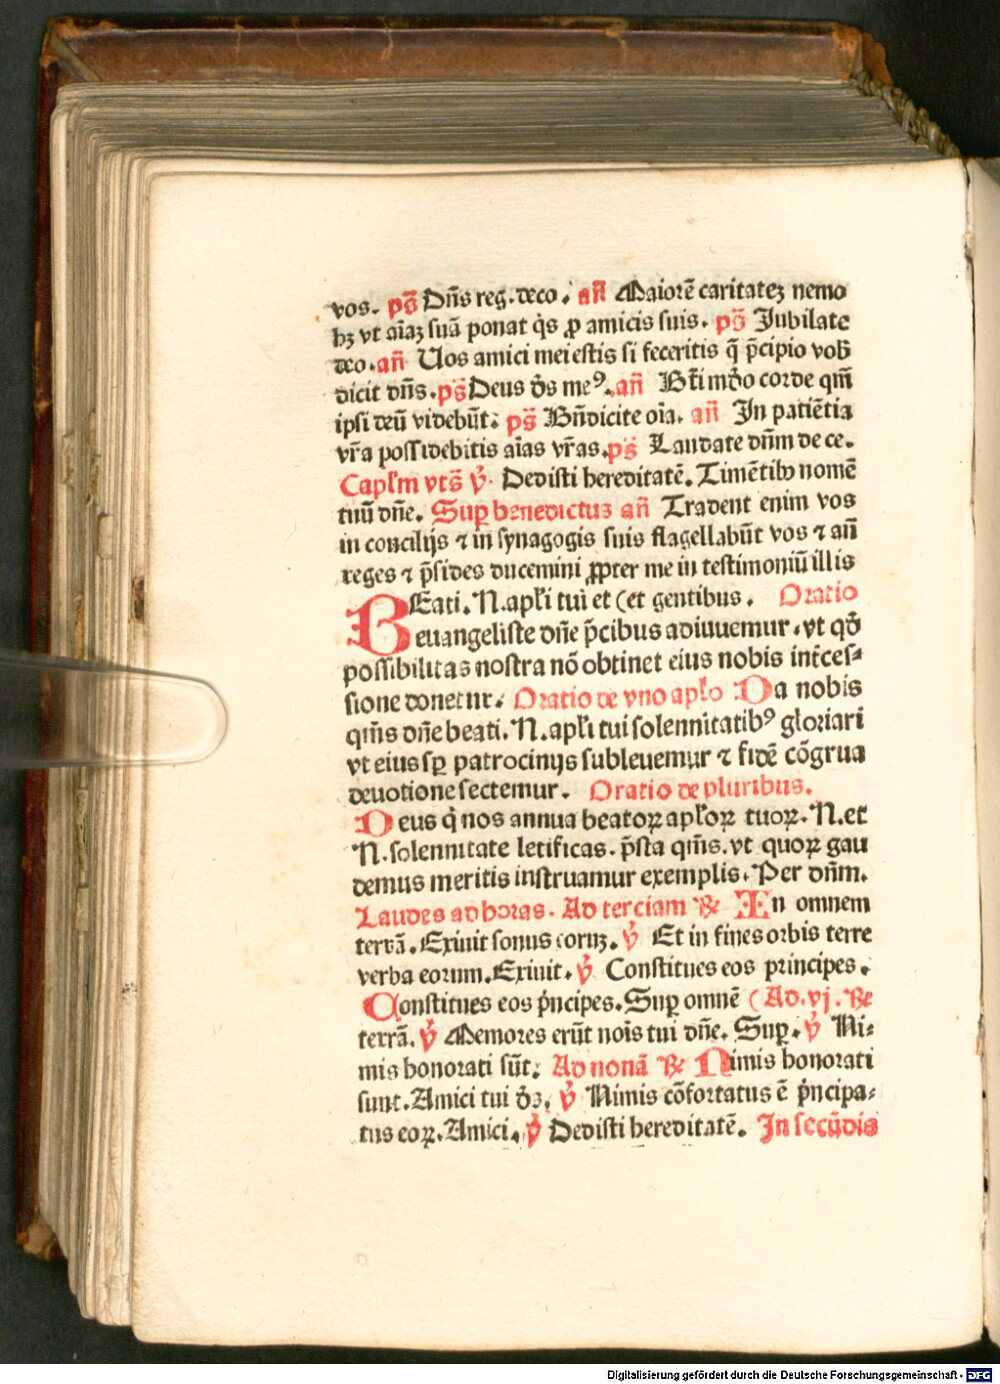 vos. ps̄ Dn̄s reg. deco. an̄ Maiorē caritateꝫ nemo
hꝫ vt aīaꝫ suā ponat q̄s ꝓ amicis suis. ps̄ Jubilate
deo. an̄ Uos amici mei estis si feceritis q̄ p̄cipio vob̄
dicit dn̄s. ps̄ Deus d̄s meꝰ. an̄ Bt̄i mūdo corde qm̄
ipsi deū videbūt: ps̄ Bn̄dicite oīa. an̄ In patiētia
vr̄a possidebitis aīas vr̄as. ps̄ Laudate dn̄m de ce.
Capl̄m vts̄ ℣. Dedisti hereditatē. Timētibꝰ nomē
tuū dn̄e. Suꝑ benedictus an̄ Tradent enim vos
in concilijs ⁊ in synagogis suis flagellabūt vos ⁊ an̄
reges ⁊ p̄sides ducemini ꝓpter me in testimoniū illis
BEati. N. apl̄i tui et (et gentibus. Oratio
euangeliste dn̄e p̄cibus adiuuemur. vt qd̄
possibilitas nostra nō obtinet eius nobis int̄ces⸗
sione donetur. Oratio de vno apl̄o Da nobis
qm̄s dn̄e beati. N. apl̄i tui solennitatibꝰ gloriari
vt eius sꝑ patrocinijs subleuemur ⁊ fidē cōgrua
deuotione sectemur. Oratio de pluribus.
Deus q̄ nos annua beatoꝝ apl̄oꝝ tuoꝝ. N. et
N. solennitate letificas. p̄sta qm̄s. vt quoꝝ gau
demus meritis instruamur exemplis. Per dn̄m.
Laudes ad horas. Ad terciam ℞ In omnem
terrā. Exiuit sonus eoruꝫ. ℣ Et in fines orbis terre
verba eorum. Exiuit. ℣ Constitues eos principes.
Constitues eos p̄ncipes. Suꝑ omnē (Ad. vj. ℞
terrā. ℣ Memores erūt noīs tui dn̄e. Suꝑ. ℣ Ni⸗
mis honorati sūt: Ad nonā ℞ Nimis honorati
sunt. Amici tui d̄s. ℣ Nimis cōfortatus ē p̄ncipa⸗
tus eoꝝ. Amici. ℣ Dedisti hereditatē. In secūdis
Digitalisierung gefördert durch die Deutsche Forschungsgemeinschaft - DFG